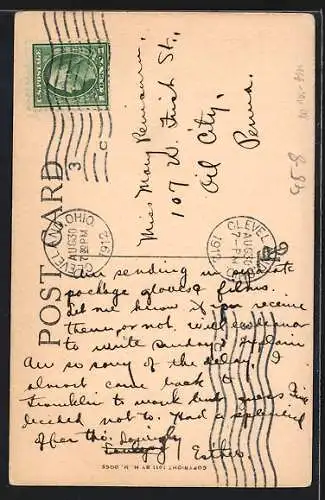 POST CARD
U.S. POSTAGE
1 CENT 1
3
C
CLEVELAND, OHIO
AUG 30
7 PM
1912
CLEVELAND
AUG 30
7 PM
1912
Miss Mary
107 W. First St.,
Oil City,
Penna.
45-8
Am sending in separate
package gloves & films.
Let me know if you receive
them or not. Will endeavor
to write Sunday & explain
Am so sorry of the delay. I
almost came back to
Franklin to work but guess I've
decided not to. Had a splendid
offer tho. Lovingly
Esther.
COPYRIGHT 1911 BY H. M. DOGS